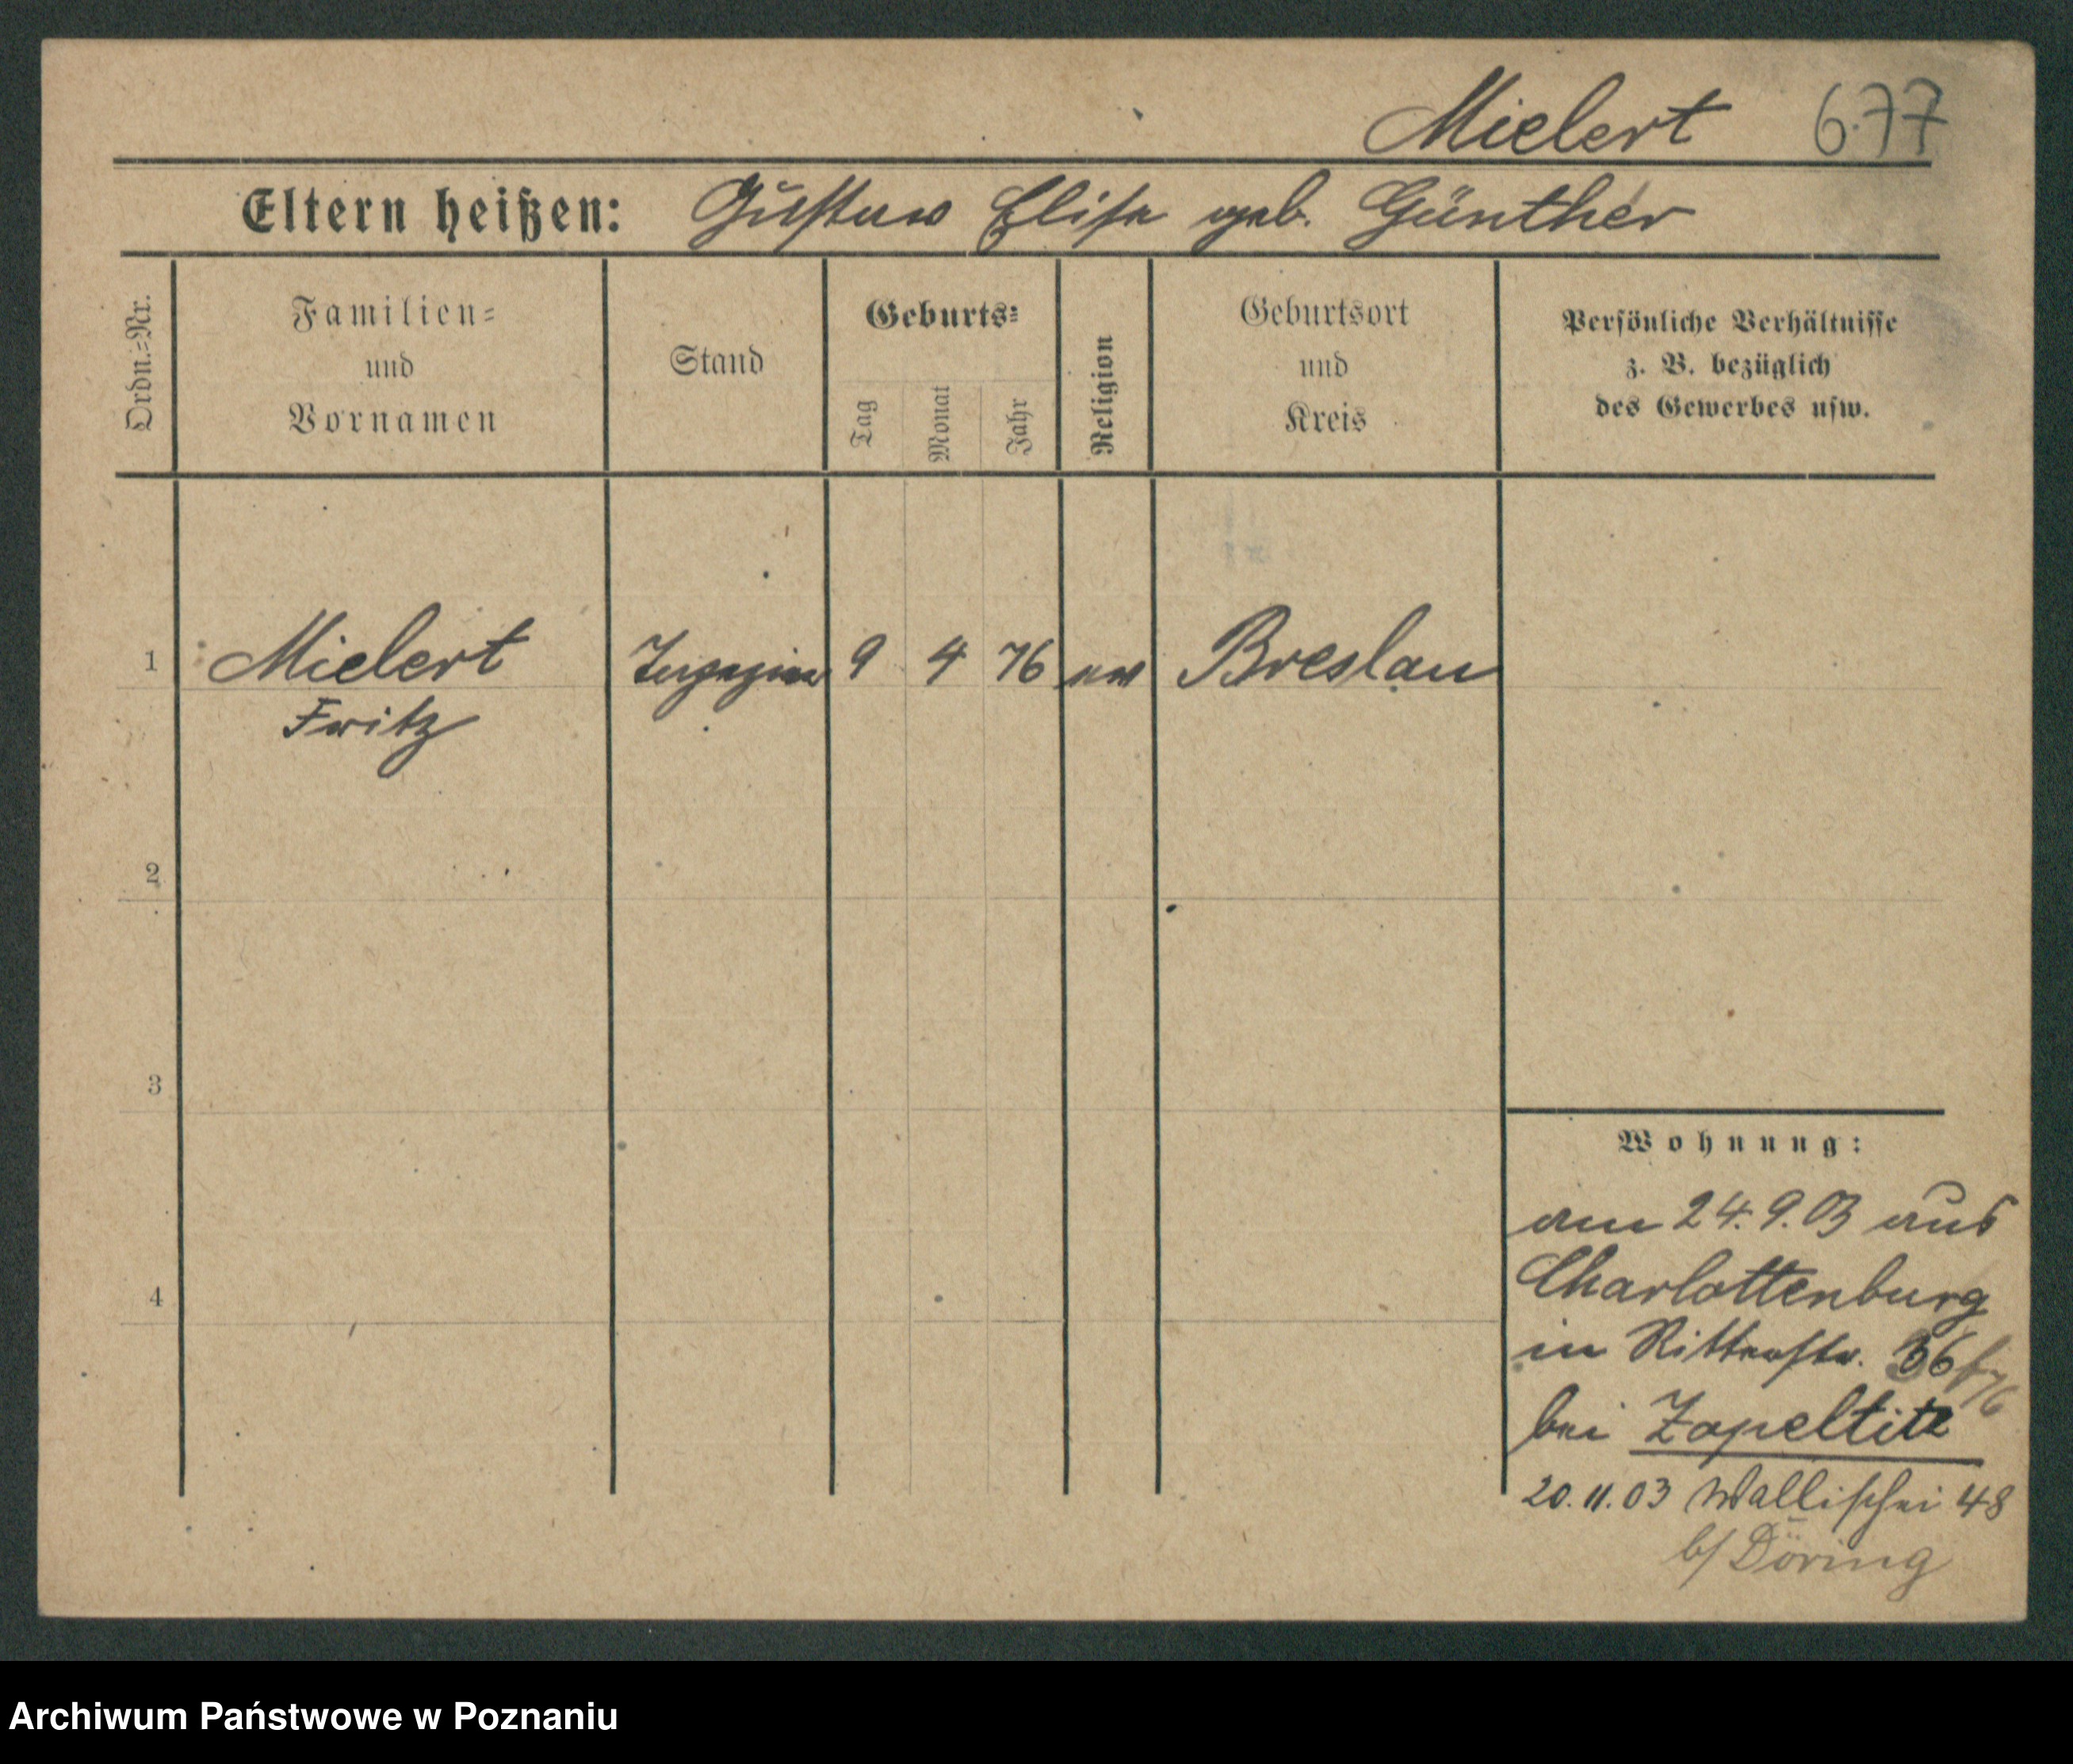 Mielert 677
Eltern heißen: Gustav Elise geb. Günther
Ordn.-Nr.
Familien-
und
Vornamen
Stand
Geburts-
Tag
Monat
Jahr
Religion
Geburtsort
und
Kreis
Persönliche Verhältnisse
z. B. bezüglich
des Gewerbes usw.
1 Mielert 9 4 76 ev Breslau
Fritz
2
3
4
Wohnung:
am 24.9.03 aus
Charlottenburg
in Ritterstr. 36
bei Zapeltitz
20.11.03 Wallischei 48
b/ Döring
Archiwum Państwowe w Poznaniu